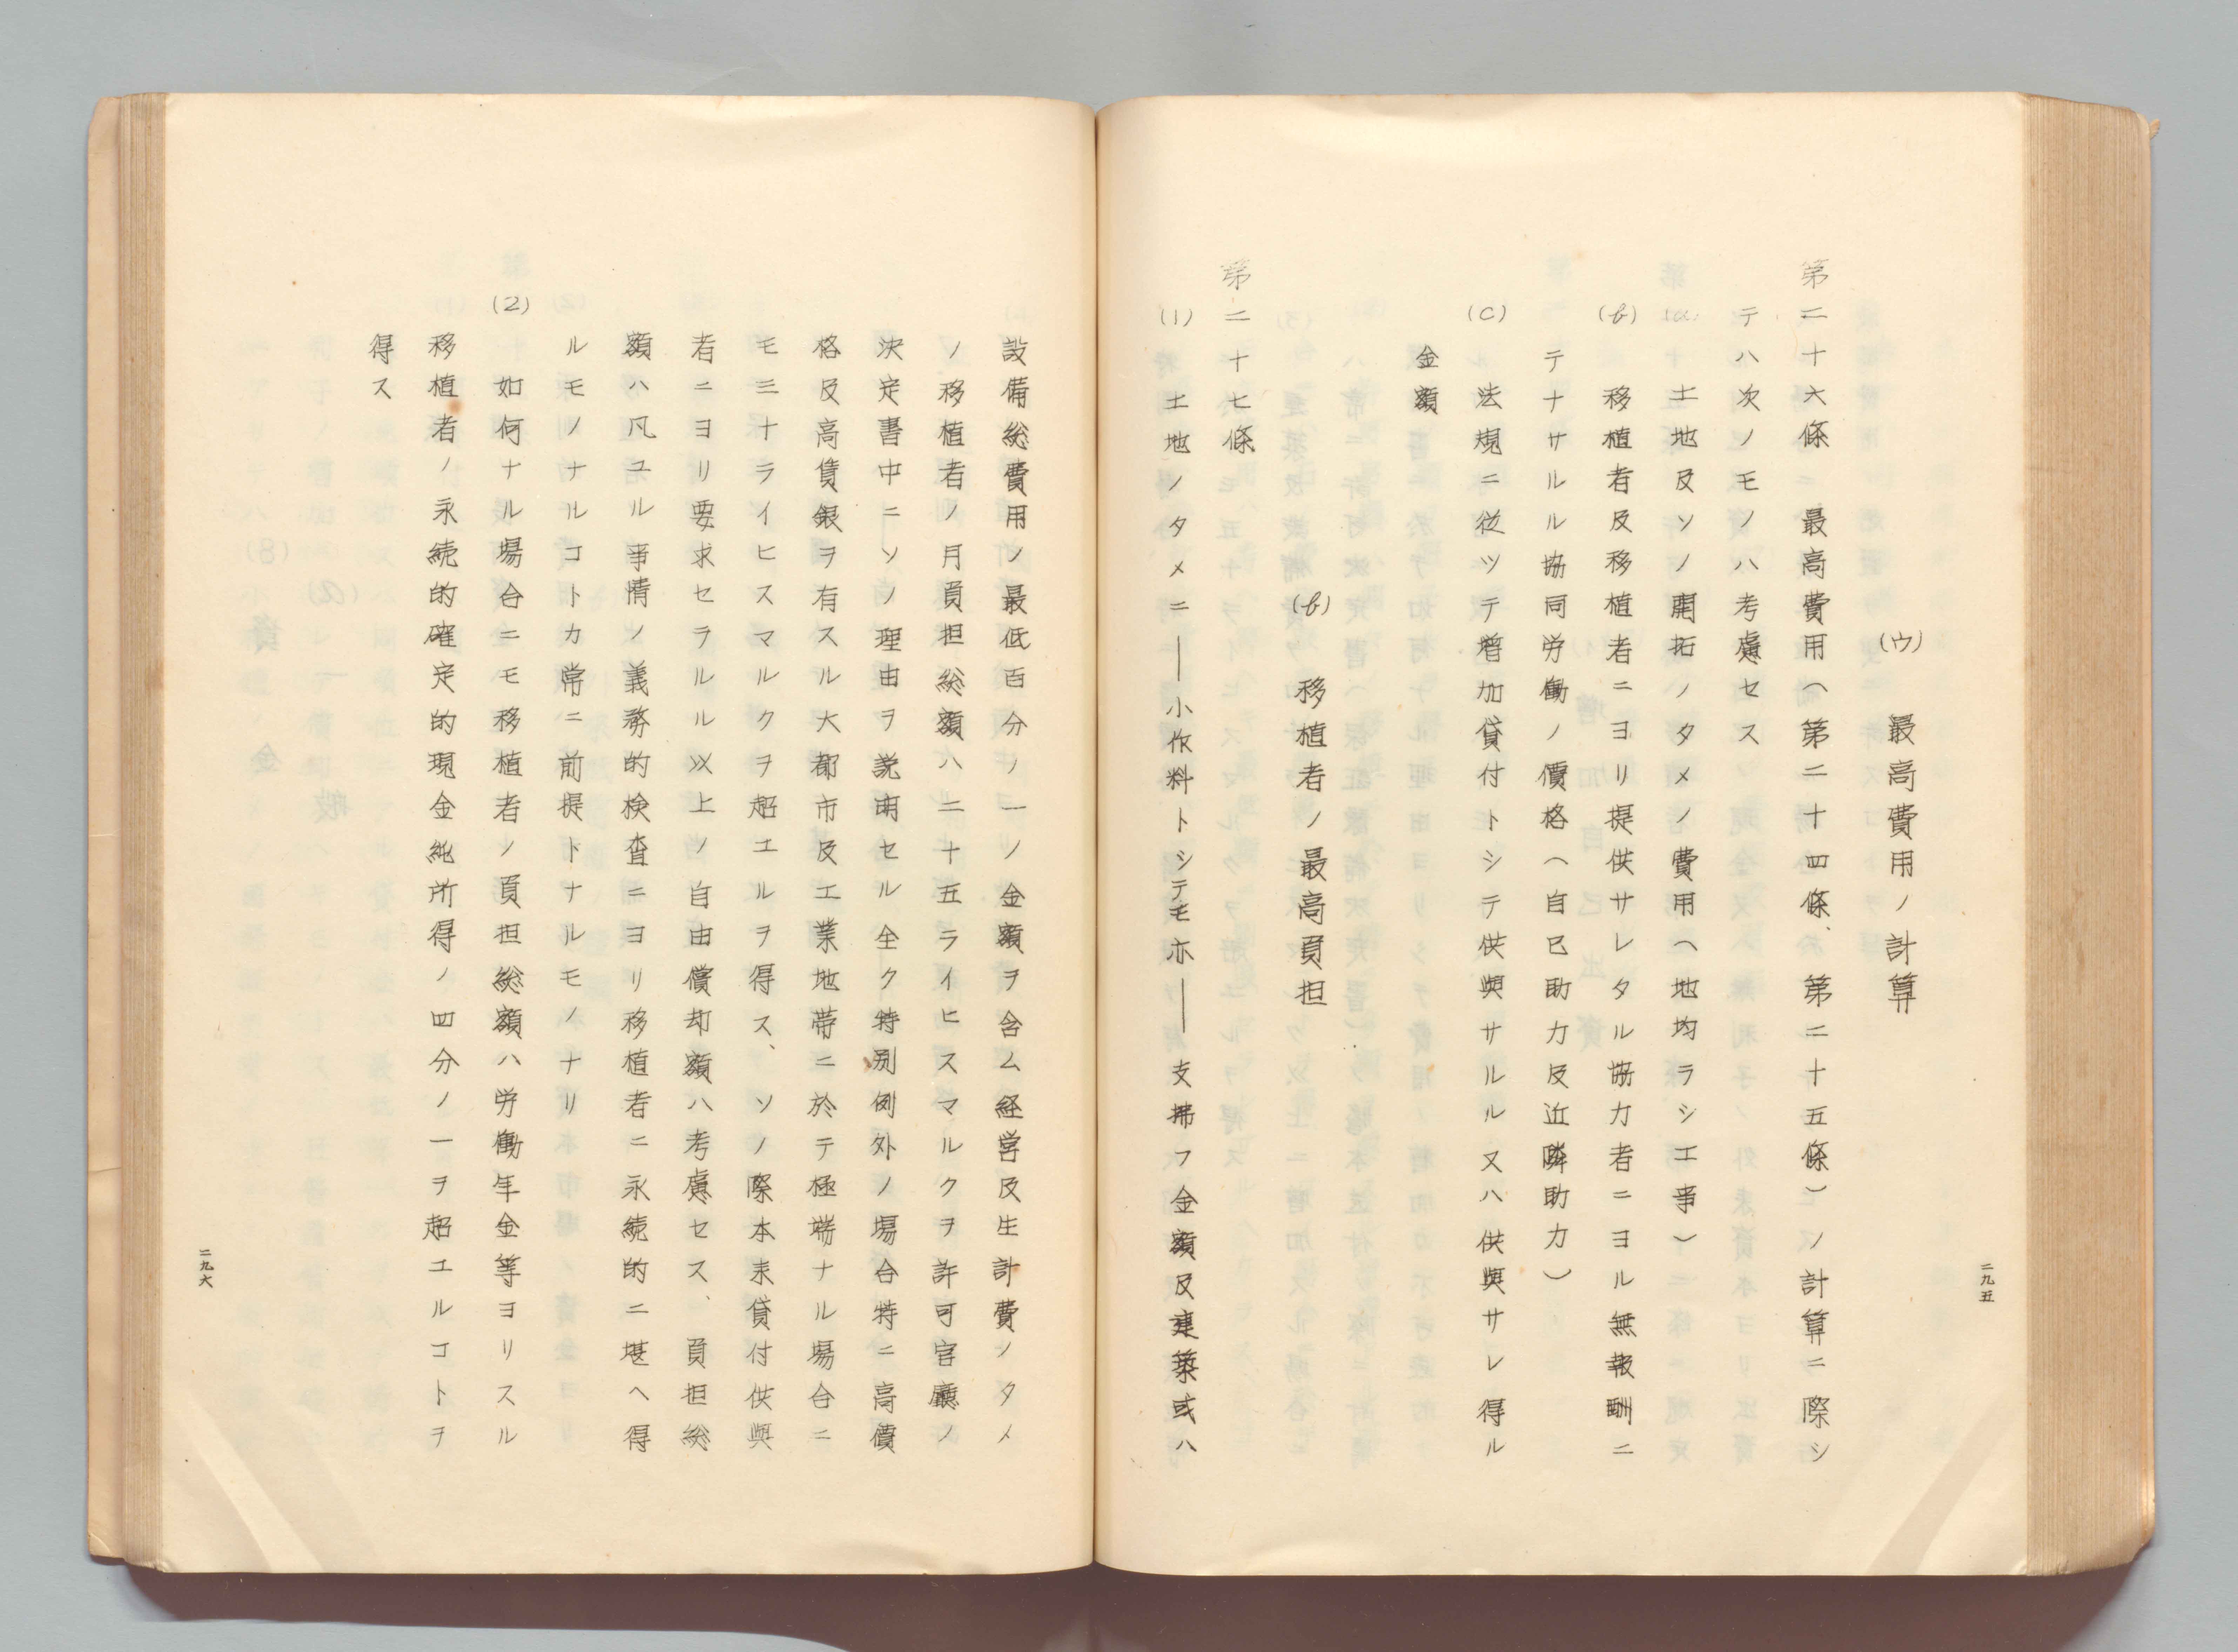 二九五
(ウ) 最高費用ノ計算
第二十六條 最高費用(第二十四條、第二十五條)ノ計算ニ際シ
テハ次ノモノハ考慮セス
(a) 土地及ソノ開拓ノタメノ費用(地均ラシエ事)
(b) 移植者及移植者ニヨリ提供サレタル協力者ニヨル無報酬ニ
テナサルル協同労働ノ價格(自已助力及近隣助力)
(C) 法規ニ従ツテ増加貸付トシテ供與サルル又ハ供與サレ得ル
金額
(b) 移植者ノ最高負担
第二十七條
(1) 土地ノタメニ――小作料トシテモ亦――支拂フ金額及建築或ハ
設備総費用ノ最低百分ノ一ノ金額ヲ含ム経営及生計費ノタメ
ノ移植者ノ月負担総額ハ二十五ライヒスマルクヲ許可官廳ノ
決定書中ニソノ理由ヲ説明セル全ク特別例外ノ場合特ニ高價
格及高賃銀ヲ有スル大都市及工業地帯ニ於テ極端ナル場合ニ
モ三十ライヒスマルクヲ超エルヲ得ス、ソノ際本来貸付供與
者ニヨリ要求セラルル以上ノ自由償却額ハ考慮セス、負担総
額ハ凡ユル事情ノ義務的検査ニヨリ移植者ニ永続的ニ堪ヘ得
ルモノナルコトカ常ニ前提トナルモノナリ
(2) 如何ナル場合ニモ移植者ノ負担総額ハ労働年金等ヨリスル
移植者ノ永続的確定的現金純所得ノ四分ノ一ヲ超エルコトヲ
得ス
二九六